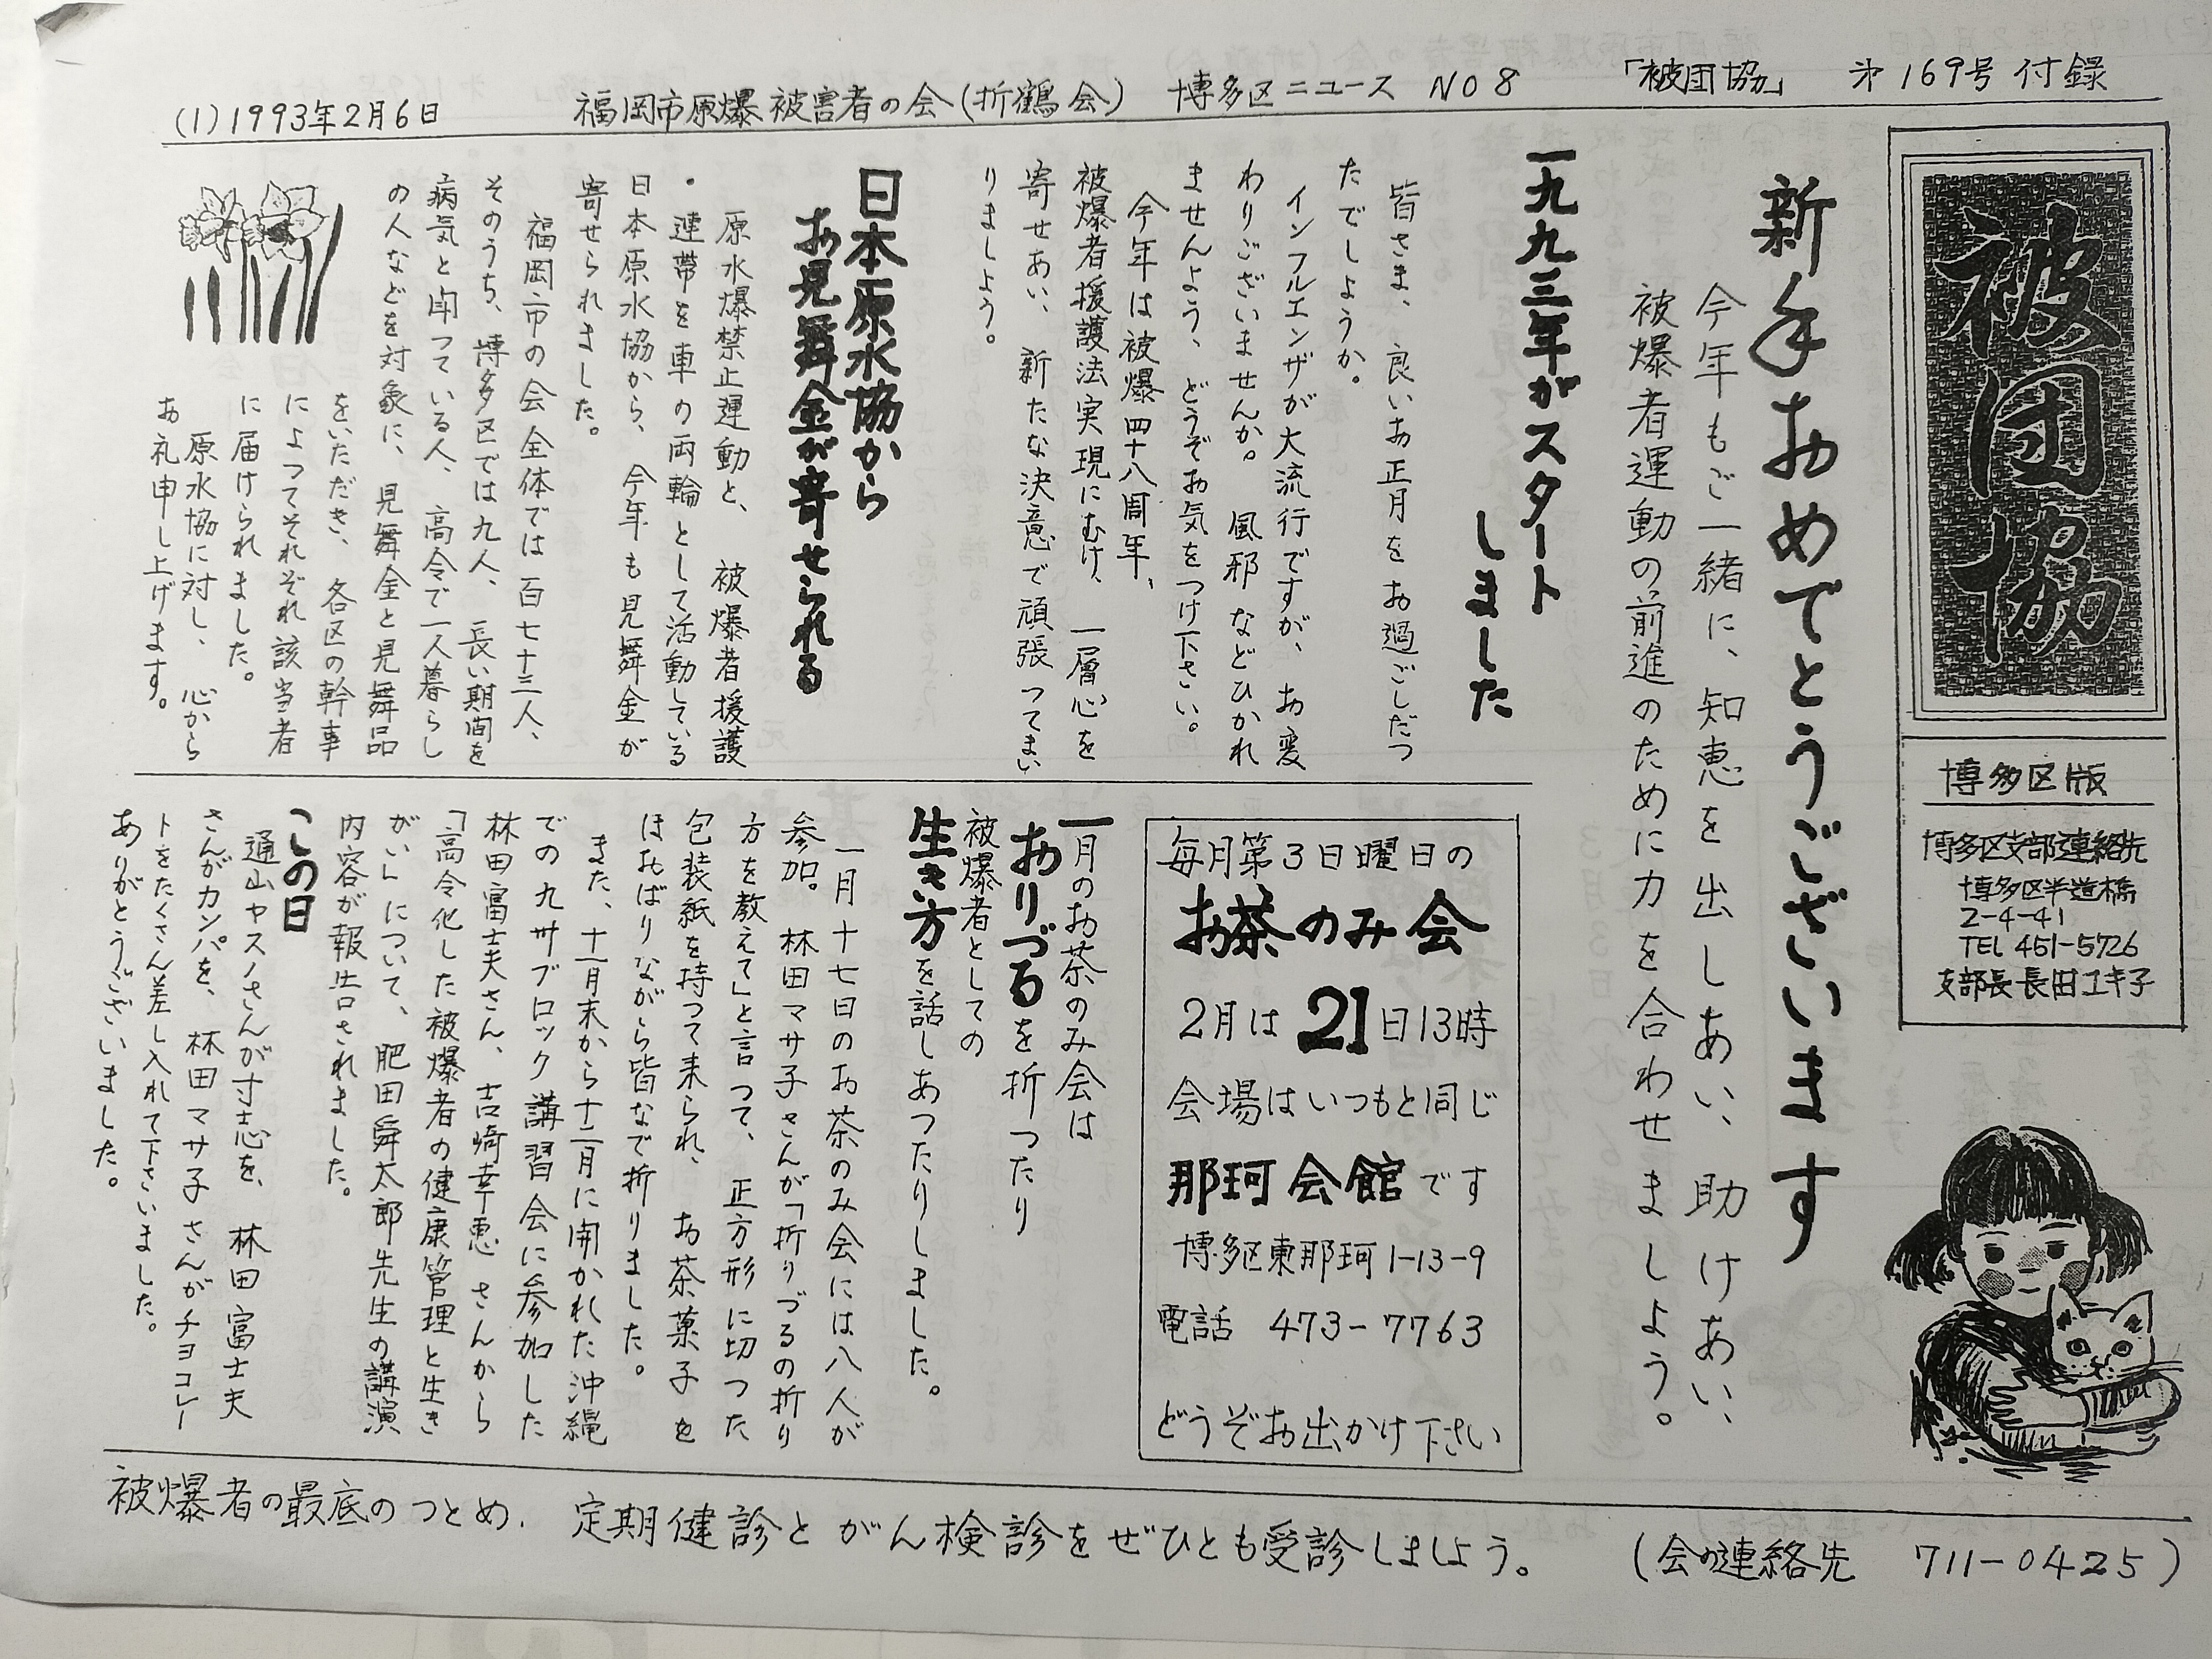 (1)1993年2月6日　福岡市原爆被害者の会(折鶴会)　博多区ニュース　NO8　「被団協」　第169号付録
被団協
博多区版
博多区支部連絡先
博多区半道橋
2-4-41
TEL 451-5726
支部長 長田ユキ子
新年おめでとうございます
今年もご一緒に、知恵を出しあい、助けあい、
被爆者運動の前進のために力を合わせましょう。
一九九三年がスタート
しました
皆さま、良いお正月をお過ごしだつ
たでしょうか。
インフルエンザが大流行ですが、お変
わりございませんか。風邪などひかれ
ませんよう、どうぞお気をつけ下さい。
今年は被爆四十八周年、
被爆者援護法実現にむけ、一層心を
寄せあい、新たな決意で頑張つてまい
りましょう。
日本原水協から
お見舞金が寄せられる
原水爆禁止運動と、被爆者援護
・連帯を車の両輪として活動している
日本原水協から、今年も見舞金が
寄せられました。
福岡市の会全体では百七十三人、
そのうち、博多区では九人、長い期間を
病気と闘つている人、高令で一人暮らし
の人などを対象に、見舞金と見舞品
をいただき、各区の幹事
によつてそれぞれ該当者
に届けられました。
原水協に対し、心から
お礼申し上げます。
毎月第3日曜日の
お茶のみ会
2月は21日13時
会場はいつもと同じ
那珂会館です
博多区東那珂1-13-9
電話　473-7763
どうぞお出かけ下さい
一月のお茶のみ会は
おりづるを折つたり
被爆者としての
生き方を話しあつたりしました。
一月十七日のお茶のみ会には八人が
参加。林田マサ子さんが「折りづるの折り
方を教えて」と言つて、正方形に切つた
包装紙を持つて来られ、お茶菓子を
ほおばりながら皆なで折りました。
また、十一月末から十二月に開かれた沖縄
での九州ブロック講習会に参加した
林田富士夫さん、吉﨑幸恵さんから
「高令化した被爆者の健康管理と生き
がい」について、肥田舜太郎先生の講演
内容が報告されました。
この日
通山ヤスノさんが寸志を、林田富士夫
さんがカンパを、林田マサ子さんがチョコレー
トをたくさん差し入れて下さいました。
ありがとうございました。
被爆者の最底のつとめ、定期健診とがん検診をぜひとも受診しましょう。　(会の連絡先　711-0425)